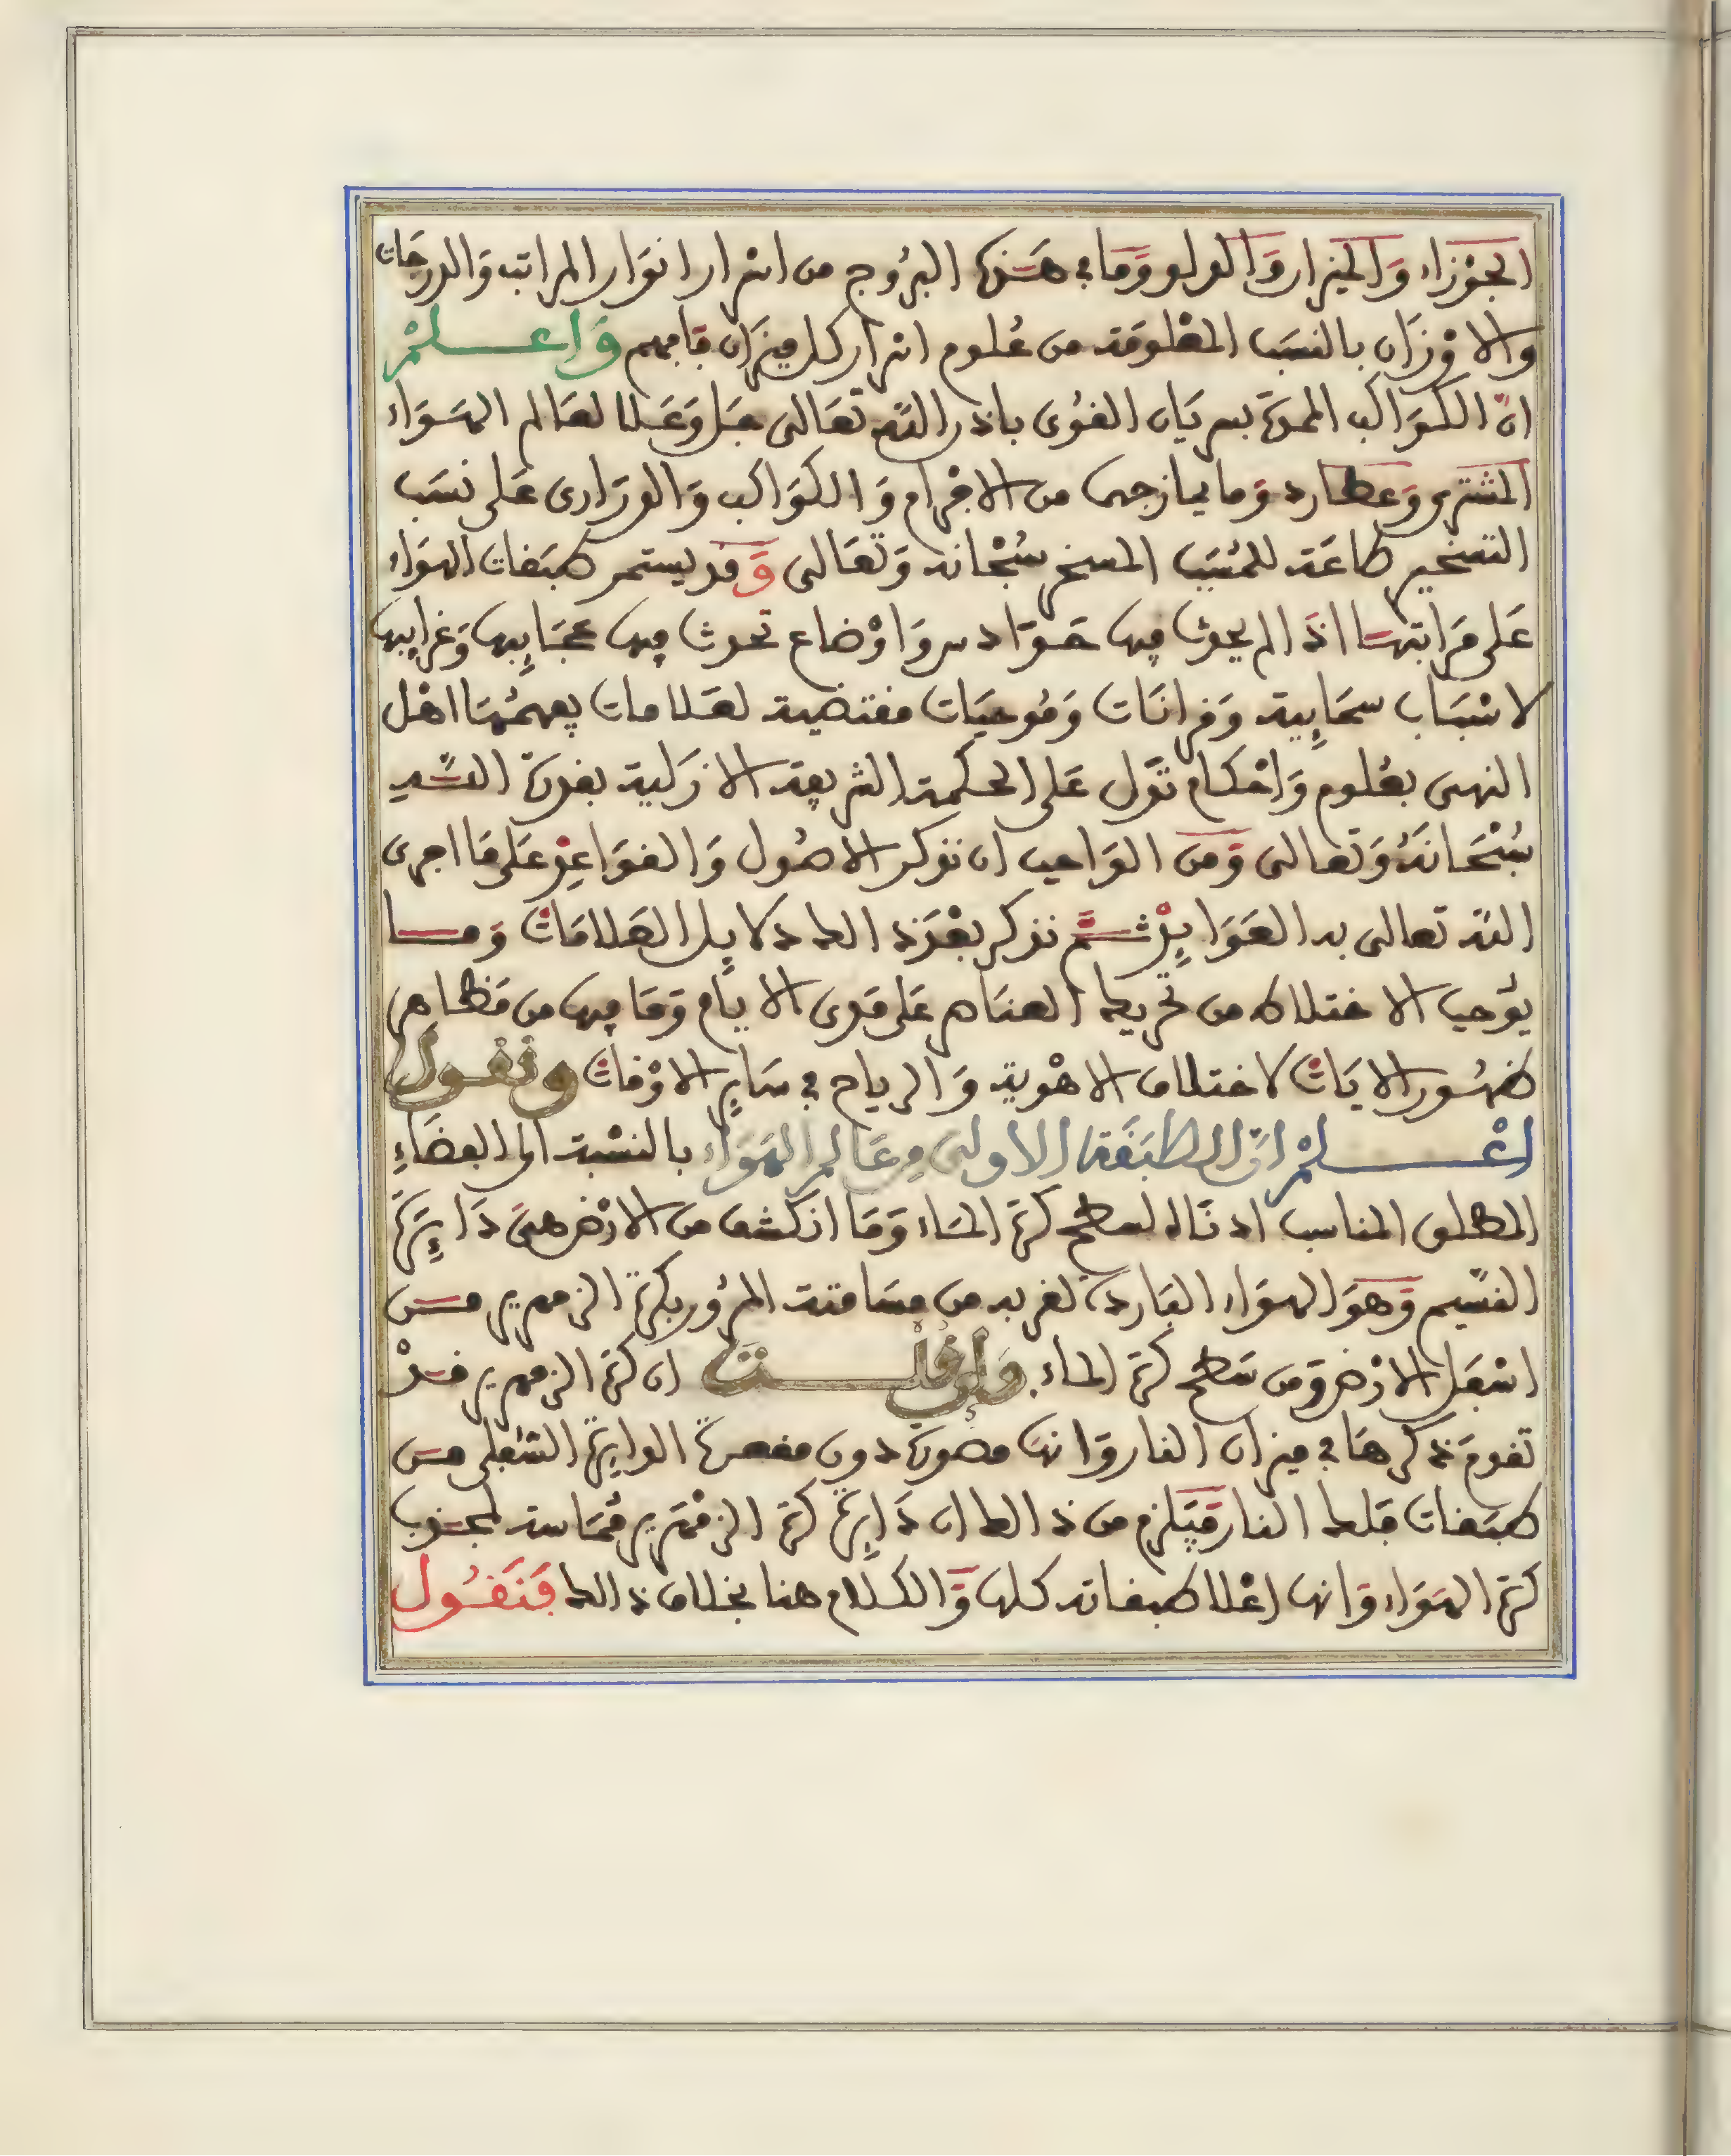 الجوزاء والميزان والدلو وما في هذه البروج من اسرار انوار المراتب والدرجات
والاوزان بالنسب المعلومة من علوم اسرار كل ميزان فافهم واعلم
ان الكواكب الممدة بسريان القوى باذن الله تعالى جل وعلا لعالم الهواء
المشتري وعطارد وما يمازجهما من الاجرام والكواكب والدراري على نسب
التسخير طاعة للمسبب المسخر سبحانه وتعالى وقد يستمر طبقات الهواء
على مراتبها اذا لم يحدث فيها حوادس واوضاع تحدث فيها عجايبها وغرايبها
لاسباب سحابية وقرانات وموجبات مقتضية لعلامات يفهمها اهل
النهى بعلوم واحكام تدل على الحكمة الشريعة الازلية بقدرة السيد
سبحانه وتعالى ومن الواجب ان نذكر الاصول والقواعد على ما اجرى
الله تعالى به العوايد ثم نذكر بعد ذالك دلايل العلامات وما
يوجب الاختلاط من تحريك العناصر على مدى الايام وما فيها من مظاهر
ظهور الايات لاختلاف الاهوية والرياح في ساير الاوقات ونقول
اعلم ان الطبقة الاولى من عالم الهواء بالنسبة الى الفضاء
المطلق المناسب ادناه لسطح كرة الماء وما انكشف من الارض هي دايرة
النسيم وهو الهواء البارد لقربه من مسامتة المرور بكرة الزمهرير من
اسفل الارض ومن سطح كرة الماء وان قلت ان كرة الزمهرير قد
تقدم ذكرها في ميزان النار وانها مصورة دون مقعرة الدايرة السفلى من
طبقات فلك النار فيلزم من ذالك ان دايرة كرة الزمهرير مماسة لمحدب
كرة الهواء وانها اعلا طبقاته كلها والكلام هنا بخلاف ذالك فنقول